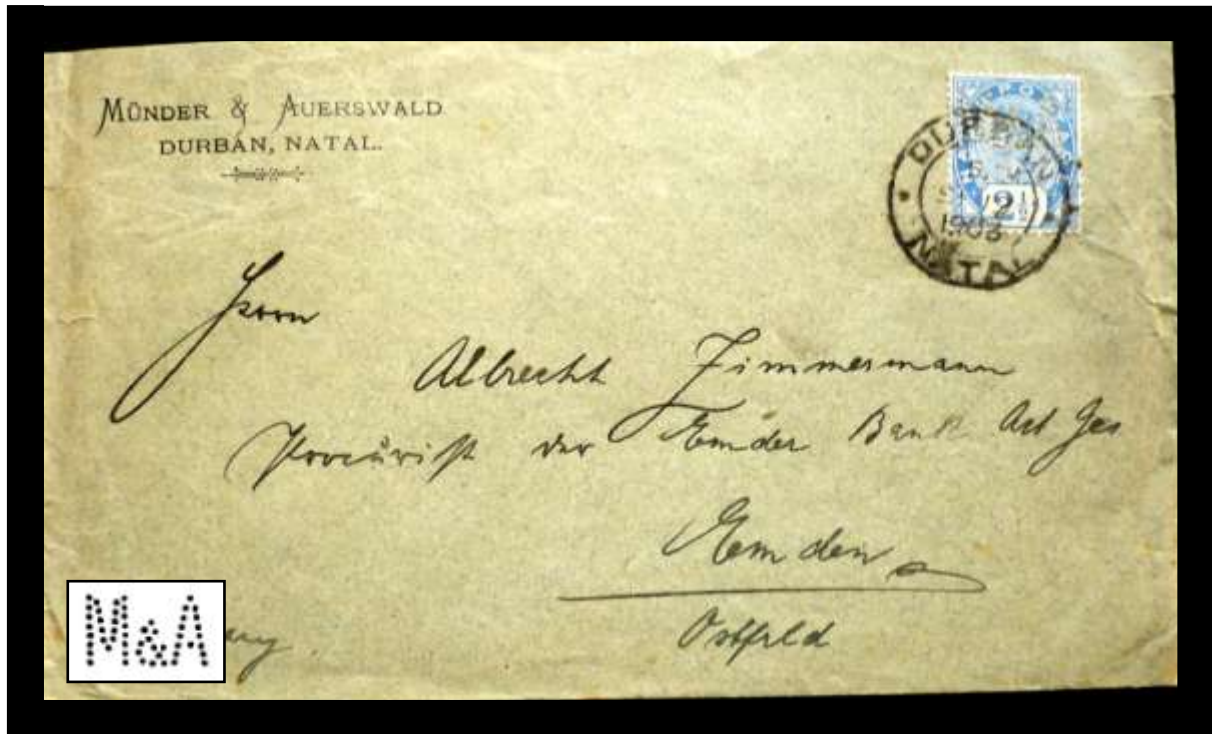 MÜNDER & AUERSWALD
DURBAN, NATAL.
POS
2½
DURBAN
1903
NATAL
Herrn
Albrecht Zimmermann
Procürist der Emder Bank Act Ges
Emden
Ostfrld
M&A